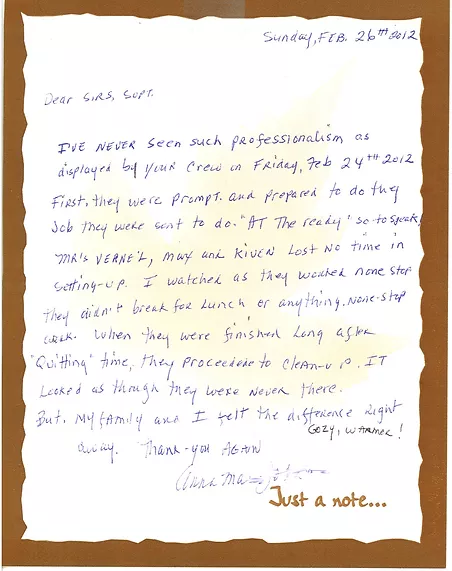 Sunday, FEB. 26TH 2012
Dear SIRS, SUPT.
I'VE NEVER seen such professionalism as
displayed by your crew on Friday, Feb 24TH 2012
First, they were prompt. and prepared to do the
Job they were sent to do. "AT The ready" so to speak,
MR's VERNEL, MAX and KIVEN Lost No time in
setting-up. I watched as they worked none stop
they didn't break for Lunch or anything. None-stop
work. When they were finished Long after
"Quitting" time, they proceeded to clean-up. IT
Looked as though they were never there.
But. My family and I felt the difference Right
away. Cozy, WARMER!
Thank-you AGAIN
Anna
Just a note...